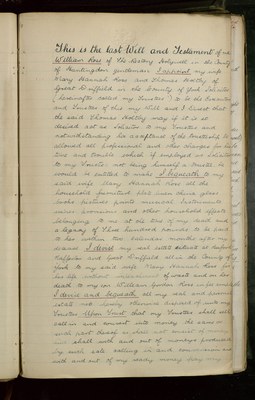 This is the last Will and Testament of me
William Rose of The Rectory Holywell in the County
of Huntingdon gentleman I appoint my wife
Mary Hannah Rose and Thomas Hortby of
Great Driffield in the County of York Solicitor
(hereinafter called my Trustees) to be the Executors
and Trustees of this my Will and I direct that
the said Thomas may if it is so
desired act as Solicitor to my Trustees and
notwithstanding his acceptance of the Trusteeship be
allowed all professional and other charges for his
time and trouble which if employed as Solicitor
to my Trustees not being himself a Trustee he
would be entitled to make I bequeath to my
said wife Mary Hannah Rose all the
household furniture plate linen china glass
books pictures prints musical instruments
wines provisions and other household effects
belonging to me at the time of my death and
a legacy of Three hundred pounds to be paid
to her within calendar months after my
decease I devise my real estate situate at
and Great Driffield all in the County of
York to my said wife Mary Hannah Rose for
her life without impeachment of waste and on her
death to my son William Rose in fee simple
I devise and bequeath all my real and personal
estate not hereby otherwise disposed of unto my
Trustees Upon Trust that my Trustees shall sell
call in and convert into money the same or
such part thereof as shall not consist of money
and shall with and out of moneys produced
by such sale calling in and conversion and
with and out of my ready money pay my